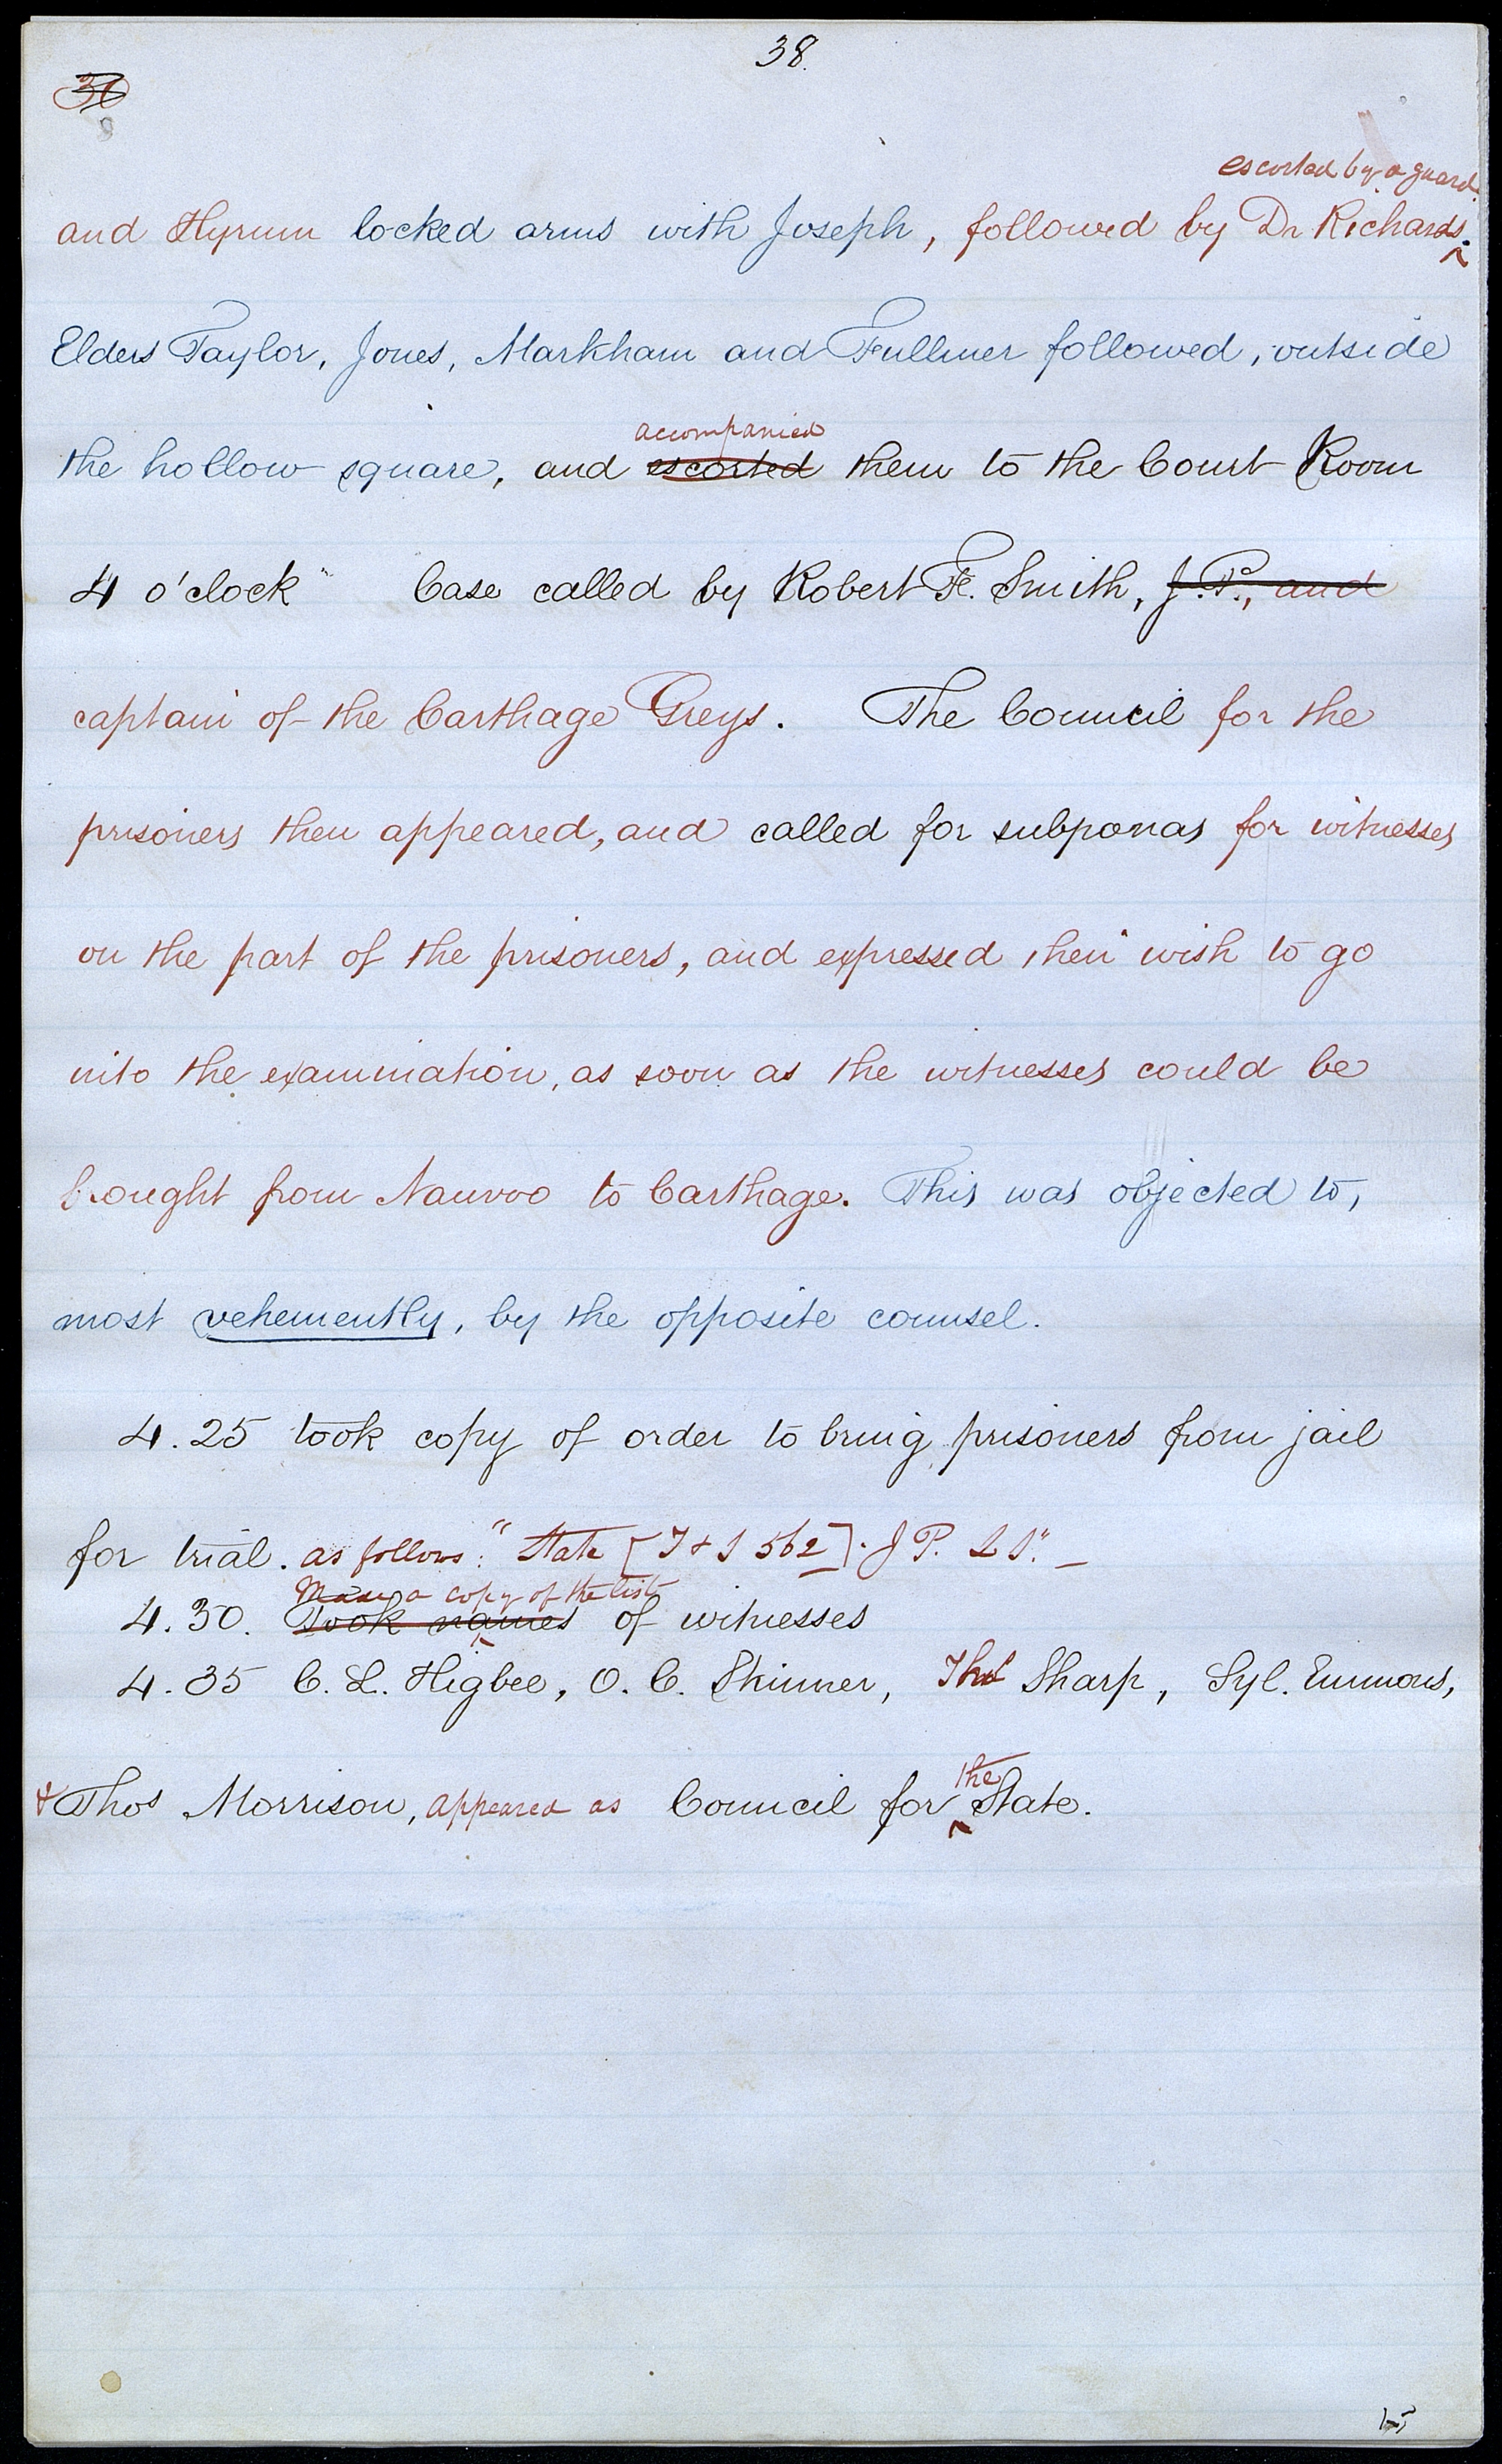 38.
37
escorted by a guard.
and Hyrum locked arms with Joseph, followed by Dr Richards.
Elders Taylor, Jones, Markham and Fullmer followed, outside
accompanied
the hollow square, and escorted them to the Court Room
4 o'clock" Case called by Robert F. Smith, J. P., and
captain of the Carthage Greys. The Council for the
prisoners then appeared, and called for subponas for witnesses
on the part of the prisoners, and expressed their wish to go
into the examination, as soon as the witnesses could be
brought from Nauvoo to Carthage. This was objected to,
most vehemently, by the opposite counsel.
4.25 took copy of order to bring prisoners from jail
for trial. as follows: "State [T & S 562]. J P. L S." –
a copy of the list
4.30. Took names of witnesses
4.35 C. L. Higbee, O. C. Skinner, Thos Sharp, Syl. Emmons,
the
& Thos Morrison, appeared as Council for State.